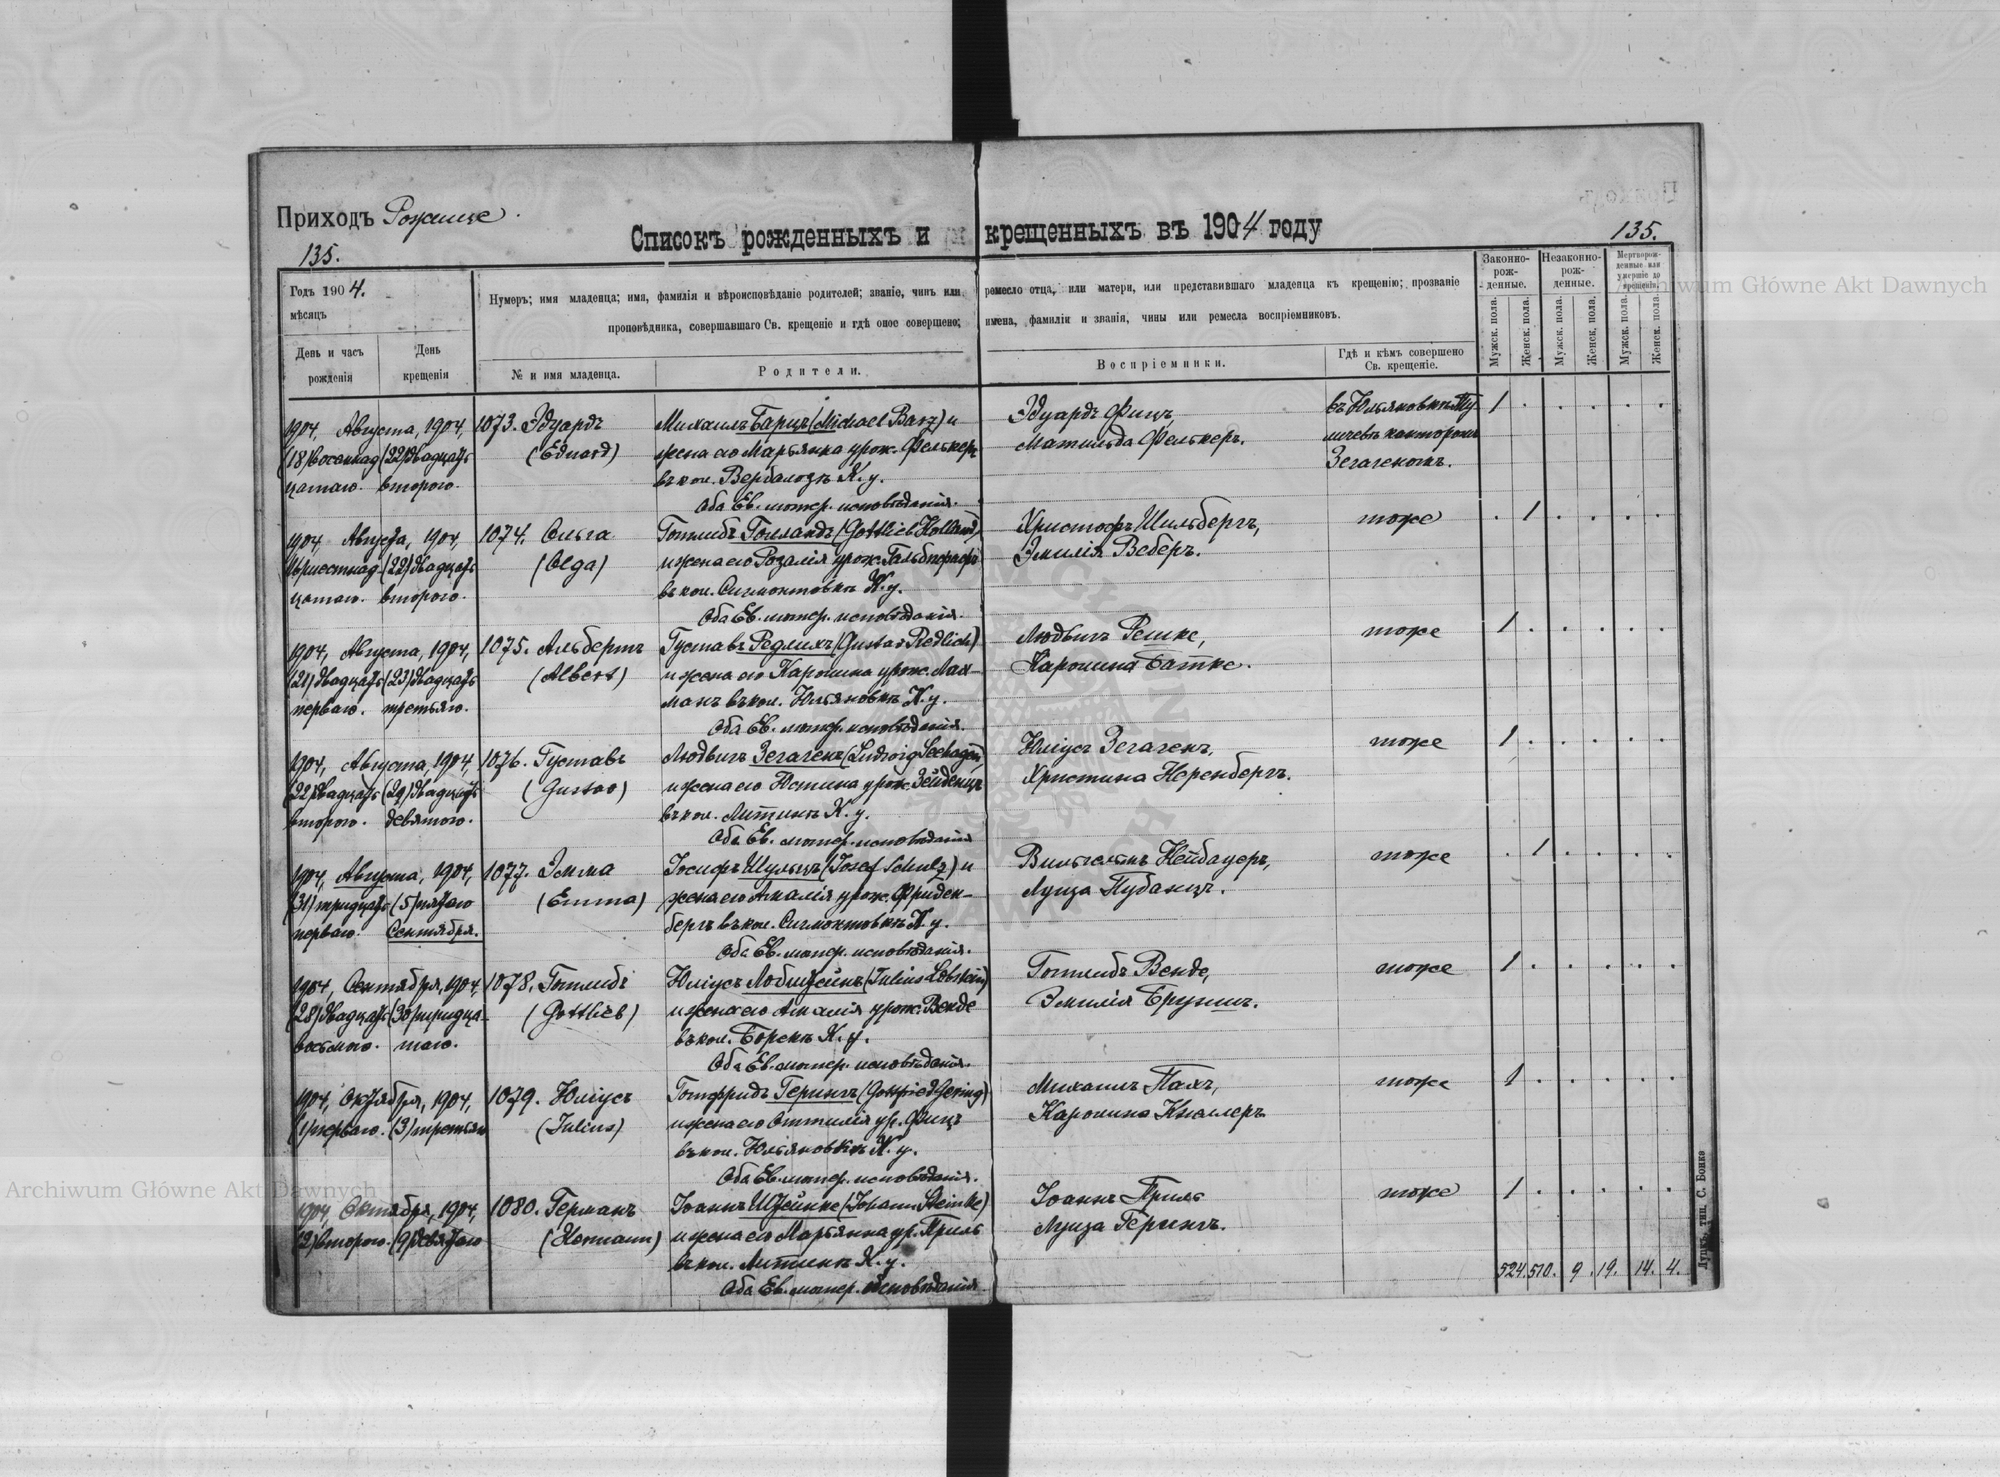 Приходъ Рожище.
Списокъ рожденныхъ и крещенныхъ въ 1904 году
135.
135.
Годъ 1904.
мѣсяцъ
День и часъ
рожденія
День
крещенія
Нумеръ; имя младенца; имя, фамилія и вѣроисповѣданіе родителей; званіе, чинъ или ремесло отца, или матери, или представившаго младенца къ крещенію; прозваніе
проповѣдника, совершавшаго Св. крещеніе и гдѣ оное совершено; имена, фамиліи и званія, чины или ремесла воспріемниковъ.
№ и имя младенца.
Родители.
Воспріемники.
Гдѣ и кѣмъ совершено
Св. крещеніе.
Законно-
рож-
денные.
Незаконно-
рож-
денные.
Мертворож-
денные или
умершіе до
крещенія.
Мужск. пола.
Женск. пола.
Мужск. пола.
Женск. пола.
Мужск. пола.
Женск. пола.
1904, Августа, 1904, 1073. Эдуардъ Михаилъ Барцъ (Michael Barz) и Эдуардъ Фицъ, въ Юльяновкѣ 1
(18) восемнад (22) двадцать (Eduard) жена его Марьянна урож. Фелькеръ Матильда Фелькеръ. канторомъ
цатаго. второго. въ кол. Вербалозъ К. у. Зегагеномъ.
Оба Ев. лютер. исповѣданія.
1904, Августа, 1904, 1074. Ольга Готлибъ Голландъ (Gottlieb Holland) Христофъ Шильбергъ, тоже 1
шестнад (22) двадцать (Olga) и жена его Розалія урож. Эмилія Веберъ.
цатаго. второго. въ кол. Сигмонтовкѣ К. у.
Оба Ев. лютер. исповѣданія.
1904, Августа, 1904, 1075. Альбертъ Густавъ Редлихъ (Gustav Redlich) Людвигъ тоже 1
(21) двадцать (23) двадцать (Albert) и жена его Каролина урож. Лах- Каролина Батке.
перваго. третьяго. манъ въ кол. Юльяновкѣ К. у.
Оба Ев. лютер. исповѣданія.
1904, Августа, 1904, 1076. Густавъ Людвигъ Зегагенъ (Ludwig Seehagen) Юліусъ Зегагенъ, тоже 1
(22) двадцать (29) двадцать (Gustav) и жена его Юстина урож. Зейдлицъ Христина Неренбергъ.
второго. девятого. въ кол. Литинъ К. у.
Оба Ев. лютер. исповѣданія
1904, Августа, 1904, 1077. Эмма Іосифъ Шульцъ (Josef Schulz) и Вильгельмъ Нейбауеръ, тоже 1
(31) тридцать (5) пятаго (Emma) жена его Амалія урож. Фриден- Луиза Тубанцъ.
перваго. Сентября. бергъ въ кол. Сигмонтовкѣ К. у.
Оба Ев. лютер. исповѣданія.
1904, Сентября, 1904, 1078. Готлибъ Юліусъ Лобштейнъ (Julius Lobstein) Готлибъ Венде, тоже 1
(28) двадцать (30) тридца- (Gottlieb) и жена его Амалія урож. Венде Эмилія
восьмого. таго. въ кол. Борекъ К. у.
Оба Ев. лютер. исповѣданія.
1904, Октября, 1904, 1079. Юліусъ Готфридъ Герингъ (Gottfried Gering) Михаилъ Пахъ, тоже 1
(1) перваго. (3) третьяго (Julius) и жена его Оттилія ур. Фицъ Каролина
въ кол. Юльяновкѣ К. у.
Оба Ев. лютер. исповѣданія.
1904, Октября, 1904, 1080. Германъ Іоаннъ Штейнке (Johann Steinke) ІоаннъПриль тоже 1
(2) второго. (9) девятаго (Hermann) и жена его Марьянна ур. Приль Луиза Герингъ.
въ кол. Литинъ К. у.
Оба Ев. лютер. исповѣданія.
524. 510. 9. 19. 14. 4.
Луцкъ, тип. С. Бонкъ
Archiwum Główne Akt Dawnych
Archiwum Główne Akt Dawnych